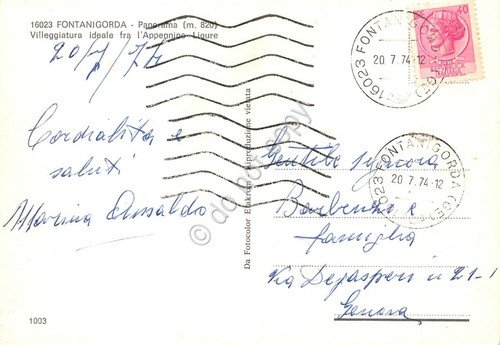 16023 FONTANIGORDA - Panorama (m. 820)
Villeggiatura ideale fra l'Appennino Ligure
20/7/74
Cordialità e
saluti
Marina Ansaldo
Da Fotocolor Etakrom Riproduzione vietata
16023 FONTANIGORDA (GE)
20.7.74-12
40
16023 FONTANIGORDA (GE)
20.7.74-12
Gentile Signora
Barbenzi e
famiglia
Via Degasperi n 21-1
Genova
1003
do not copy